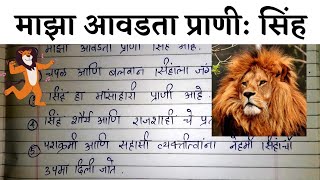 माझा आवडता प्राणीः सिंह
माझा आवडता प्राणी सिंह आहे.
चपळ आणि बलवान सिंहाला जंग
सिंह हा मांसाहारी प्राणी आहे
④ सिंह शौर्य आणि राजशाही चे प्र
⑤ पराक्रमी आणि सहासी व्यक्तीत्वांना नेहमी सिंहाची
उपमा दिली जाते.